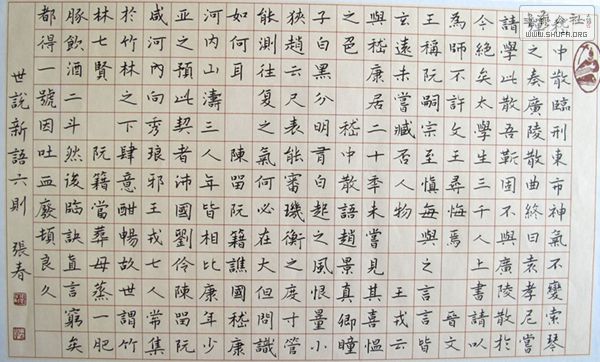 中散臨刑東市神氣不變索琴
之奏廣陵散曲終曰袁孝尼嘗
請學此散吾靳固不與廣陵散於
今絕矣太學生三千人上書請以
為師不許文王尋悔焉 晉文
王稱阮嗣宗至慎每與之言言皆
玄遠未嘗臧否人物 王戎云
與嵇康居二十秊未嘗見其喜慍
之色 嵇中散語趙景真卿瞳
子白黑分明有白起之風恨量小
狹趙云尺之表能審璣衡之度寸管
能測往復之氣何必在大但問識
如何耳 陳留阮籍譙國嵇康
河內山濤三人年皆相比康年少
亞之預此契者沛國劉伶陳留阮
咸河內向秀琅邪王戎七人常集
於竹林之下肆意酣暢故世謂竹
林七賢 阮籍當葬母蒸一肥
豚飲酒二斗然後臨訣直言窮矣
都得一號因吐血廢頓良久
世說新語六則 張春
WWW.SHUFA.ORG